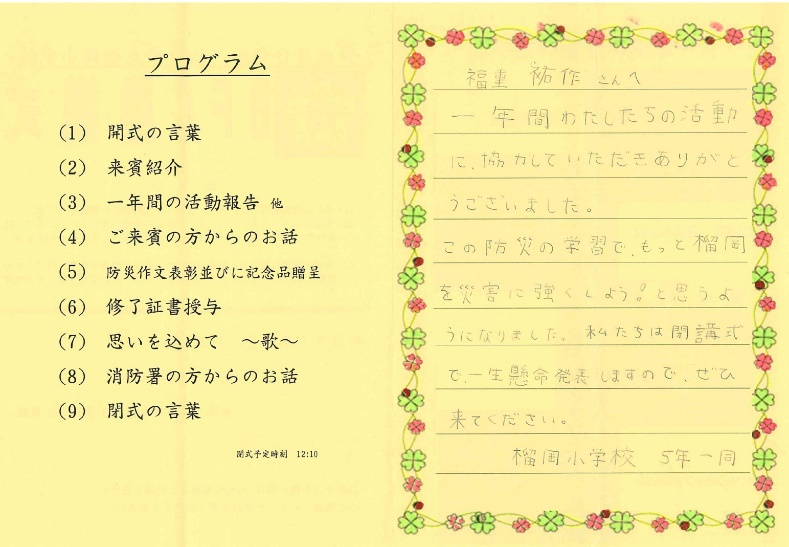 プログラム
(1) 開式の言葉
(2) 来賓紹介
(3) 一年間の活動報告 他
(4) ご来賓の方からのお話
(5) 防災作文表彰並びに記念品贈呈
(6) 修了証書授与
(7) 思いを込めて ～歌～
(8) 消防署の方からのお話
(9) 閉式の言葉
閉式予定時刻 12:10
福重 祐作 さんへ
一年間わたしたちの活動
に、協力していただきありがと
うございました。
この防災の学習で、もっと榴岡
を災害に強くしよう!と思うよ
うになりました。私たちは閉講式
で、一生懸命発表しますので、ぜひ
来てください。
榴岡小学校 5年一同